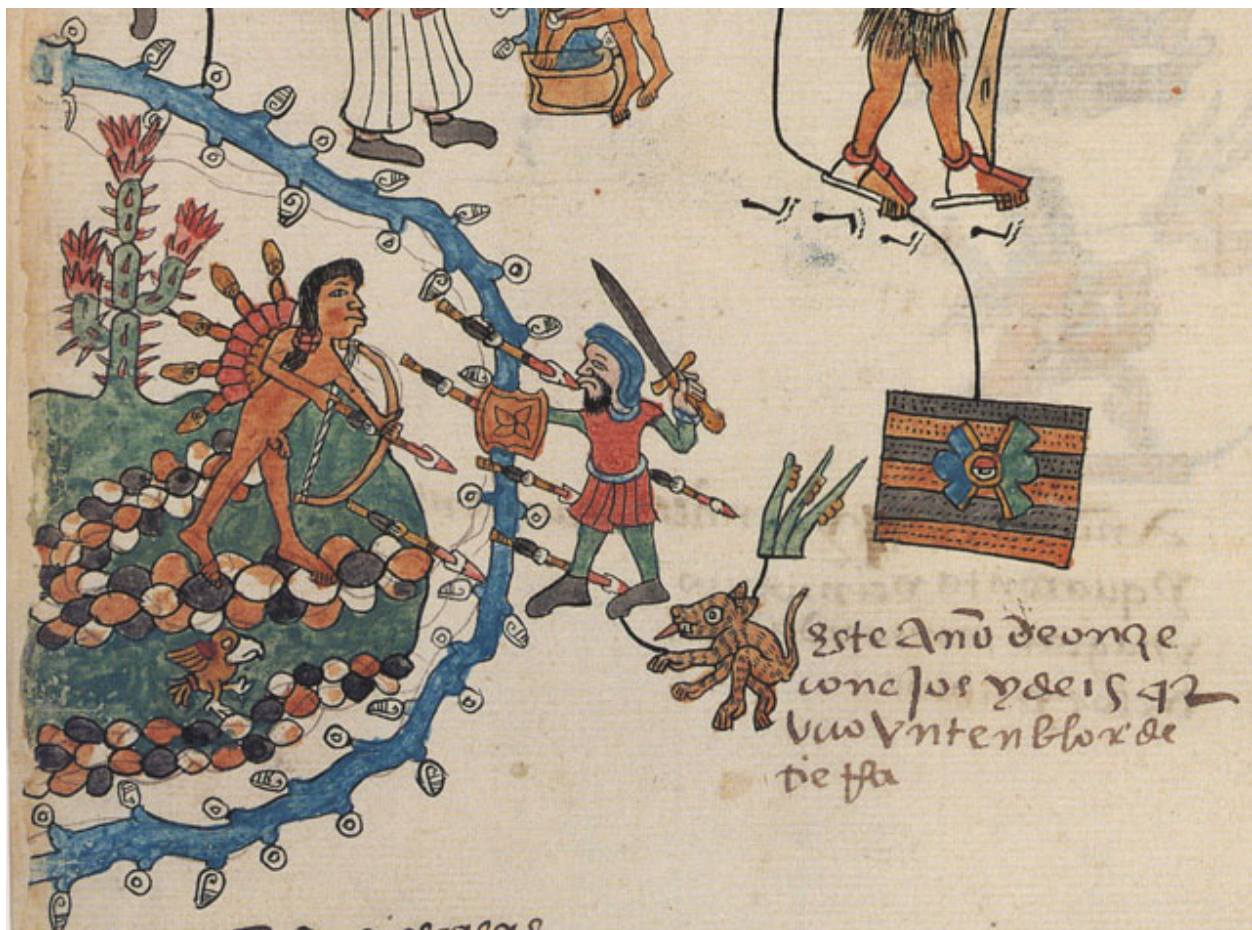 este Año de onze
conejos y de 1542
vuo vn tenblor de
tieRa